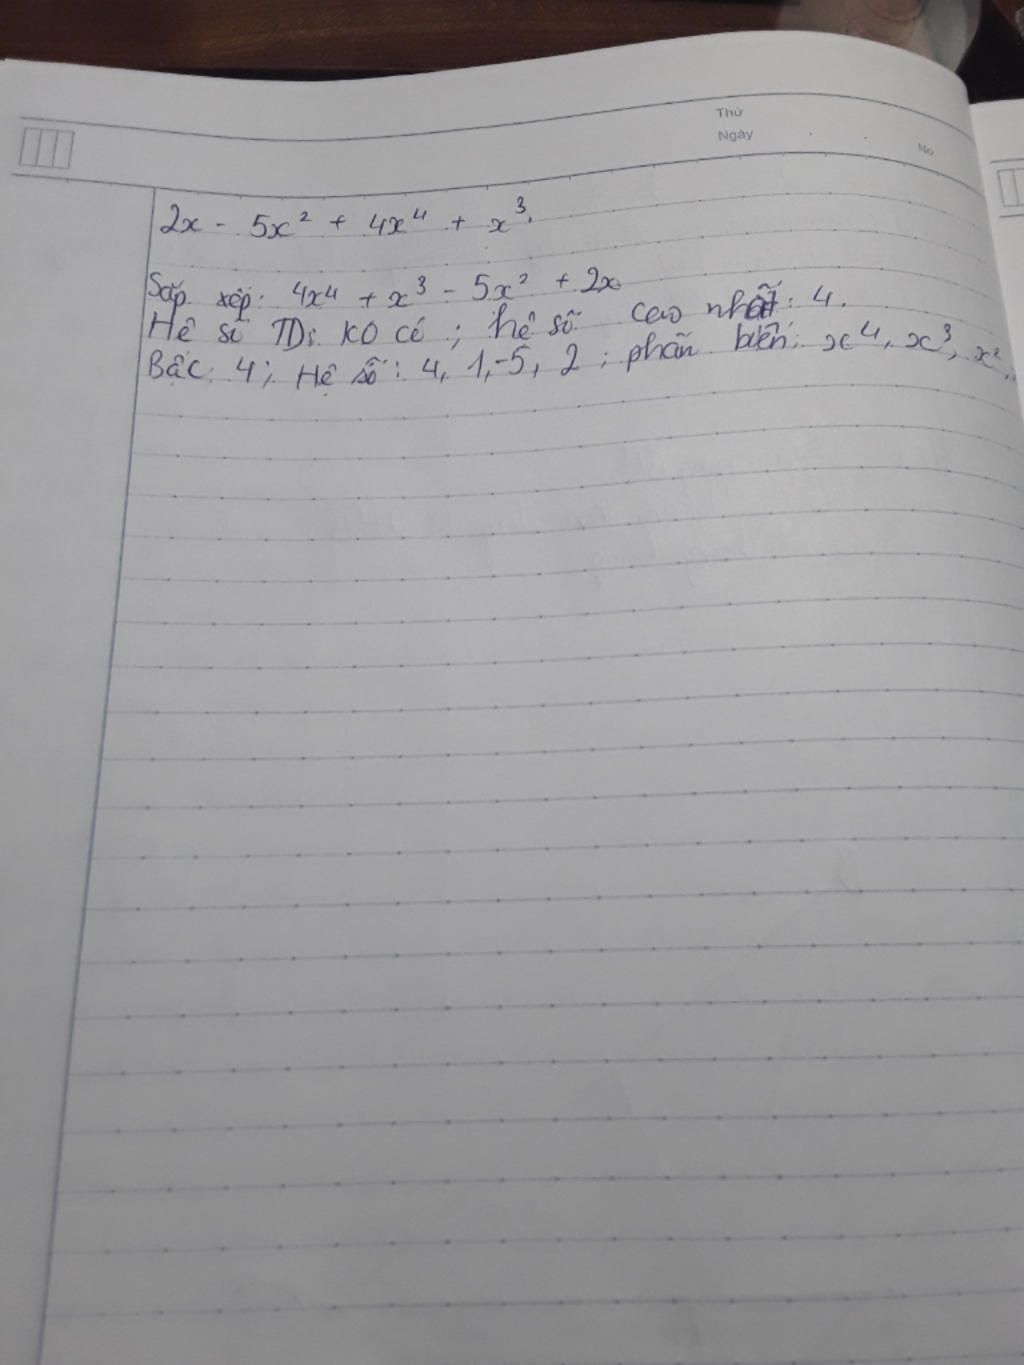 Thứ
Ngày
No
2x - 5x² + 4x⁴ + x³.
Sắp xếp: 4x⁴ + x³ - 5x² + 2x
Hệ số TD: KO có ; hệ số cao nhất: 4.
Bậc: 4; Hệ số: 4, 1, -5, 2 ; phần biến: x⁴, x³, x²,